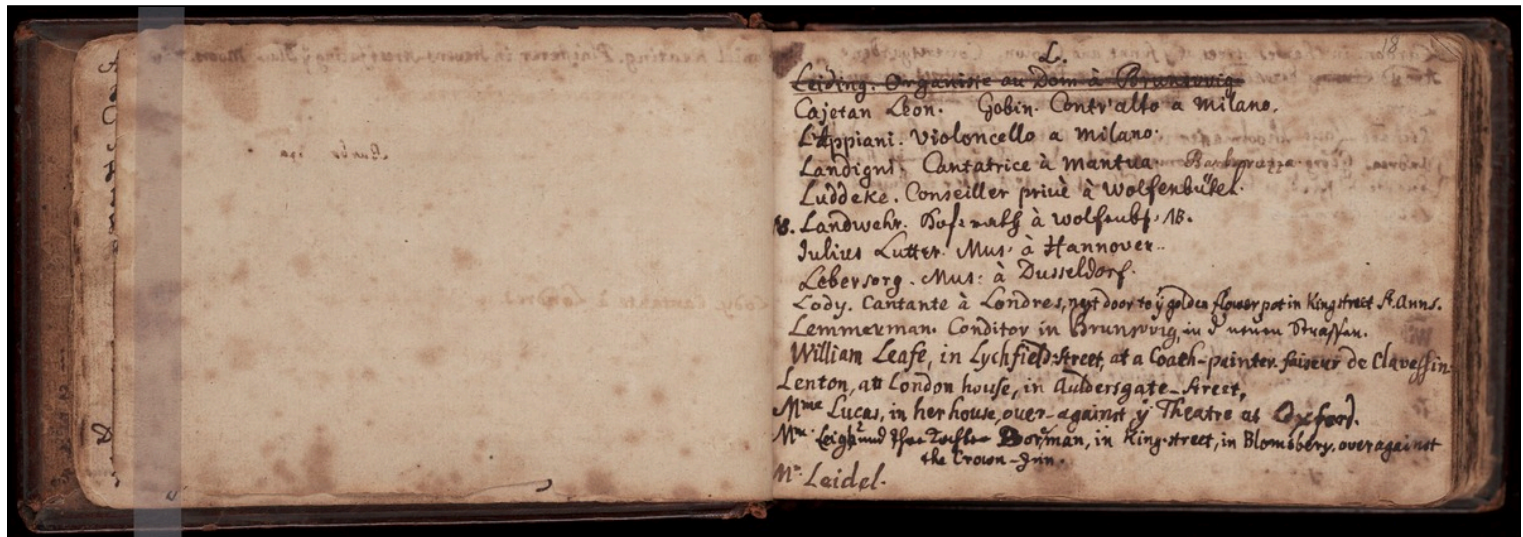 18
L.
Leiding. Organiste au Dom à Brunswig.
Cajetan Leon. Gobin. Contr'alto a Milano.
L'Appiani. Violoncello a Milano.
Landigni. Cantatrice à Mantua
Luddeke. Conseiller privè à Wolfenbüttel.
Landwehr. Hof-rath à Wolfenb. NB.
Julius Lutter. Mus. à Hannover.
Lebersorg. Mus: à Dusseldorf.
Lody. Cantante à Londres, next door to ÿ golden flower pot in Kingstreet St. Anns.
Lemmerman. Conditor in Brunswig, in d neuen Strassen.
William Leafe, in Lychfield-street, at a Coach-painter. faiseur de Clavessin.
Lenton, at London house, in Auldersgate-street,
Mme Lucas, in her house, over-against ÿ Theatre at Oxford.
Leigh und Dorman, in King-street, in Blomsbery, over against
the Crown-Inn.
Mr. Leidel.